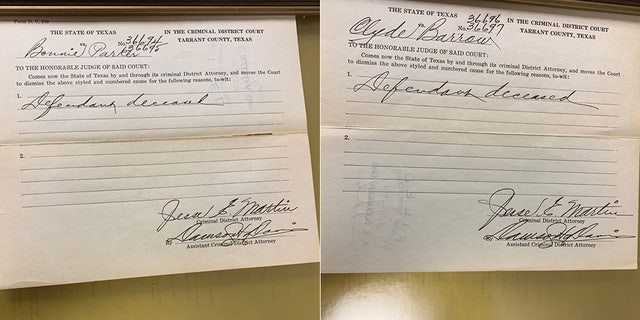 Form D. C. 250
THE STATE OF TEXAS
36694
IN THE CRIMINAL DISTRICT COURT
vs.
No. 36695
TARRANT COUNTY, TEXAS
Bonnie Parker
TO THE HONORABLE JUDGE OF SAID COURT:
Comes now the State of Texas by and through its criminal District Attorney, and moves the Court
to dismiss the above styled and numbered cause for the following reasons, to-wit:
1.
Defendant deceased
2.
Jesse E. Martin
Criminal District Attorney
By
Assistant Criminal District Attorney
THE STATE OF TEXAS
36696
IN THE CRIMINAL DISTRICT COURT
vs.
No. 36697
TARRANT COUNTY, TEXAS
Clyde Barrow
TO THE HONORABLE JUDGE OF SAID COURT:
Comes now the State of Texas by and through its criminal District Attorney, and moves the Court
to dismiss the above styled and numbered cause for the following reasons, to-wit:
1.
Defendant deceased
2.
Jesse E. Martin
Criminal District Attorney
By
Assistant Criminal District Attorney